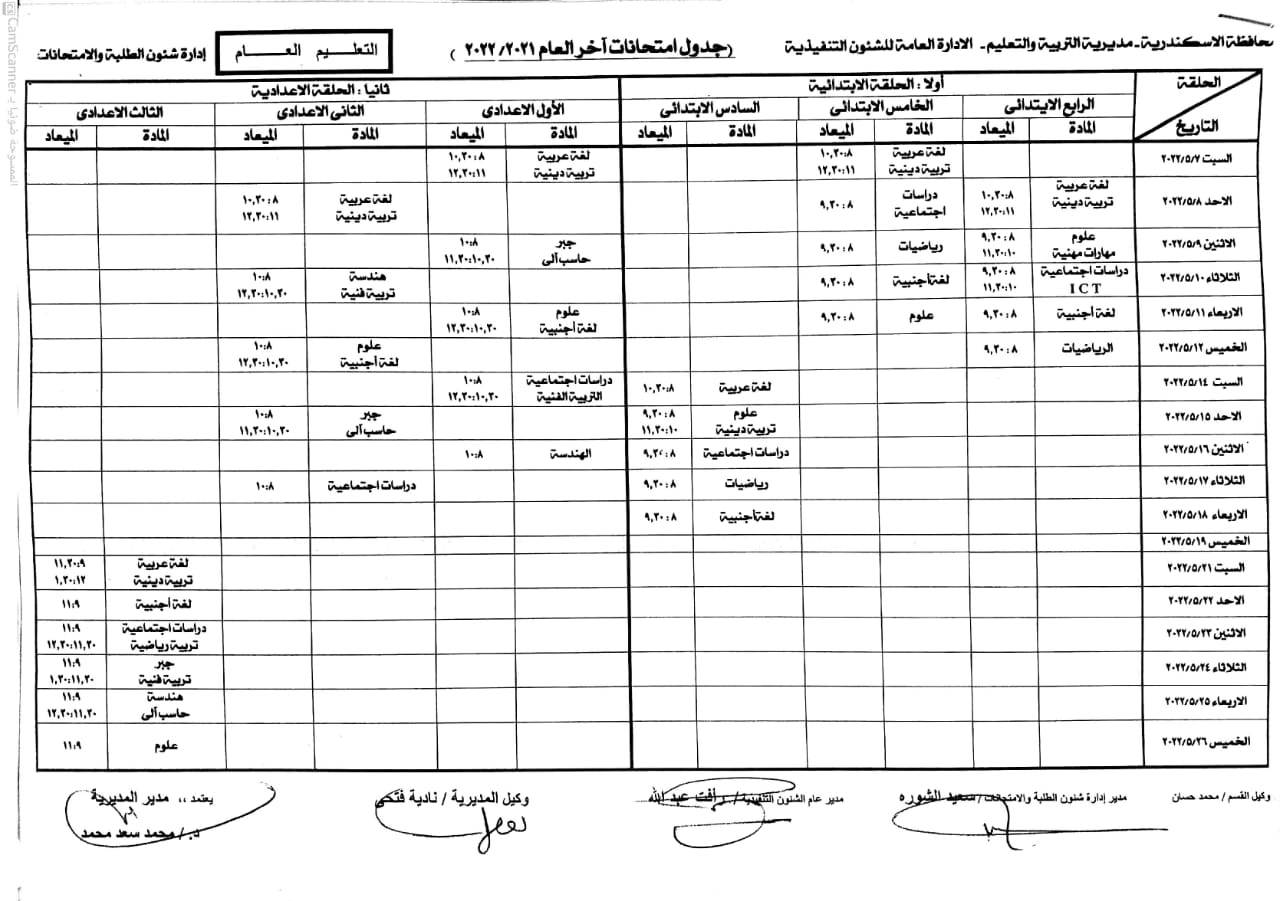 محافظة الاسكندرية - مديرية التربية والتعليم - الادارة العامة للشئون التنفيذية
(جدول امتحانات آخر العام ٢٠٢١/ ٢٠٢٢)
التعليم العام
إدارة شئون الطلبة والامتحانات
الحلقة
التاريخ
أولا : الحلقة الابتدائية
ثانيا : الحلقة الاعدادية
الرابع الابتدائى الخامس الابتدائى السادس الابتدائى الأول الاعدادى الثانى الاعدادى الثالث الاعدادى
المادة الميعاد المادة الميعاد المادة الميعاد المادة الميعاد المادة الميعاد المادة الميعاد
السبت ٢٠٢٢/٥/٧ لغة عربية ١٠,٣٠:٨ لغة عربية ١٠,٣٠:٨
تربية دينية ١٢,٣٠:١١ تربية دينية ١٢,٣٠:١١
الاحد ٢٠٢٢/٥/٨ لغة عربية ١٠,٣٠:٨ دراسات ٩,٣٠:٨ لغة عربية ١٠,٣٠:٨
تربية دينية ١٢,٣٠:١١ اجتماعية تربية دينية ١٢,٣٠:١١
الاثنين ٢٠٢٢/٥/٩ علوم ٩,٣٠:٨ رياضيات ٩,٣٠:٨ جبر ١٠:٨
مهارات مهنية ١١,٣٠:١٠ حاسب آلى ١١,٣٠:١٠,٣٠
الثلاثاء ٢٠٢٢/٥/١٠ دراسات اجتماعية ٩,٣٠:٨ لغة أجنبية ٩,٣٠:٨ هندسة ١٠:٨
ICT ١١,٣٠:١٠ تربية فنية ١٢,٣٠:١٠,٣٠
الاربعاء ٢٠٢٢/٥/١١ لغة أجنبية ٩,٣٠:٨ علوم ٩,٣٠:٨ علوم ١٠:٨
لغة أجنبية ١٢,٣٠:١٠,٣٠
الخميس ٢٠٢٢/٥/١٢ الرياضيات ٩,٣٠:٨ علوم ١٠:٨
لغة أجنبية ١٢,٣٠:١٠,٣٠
السبت ٢٠٢٢/٥/١٤ لغة عربية ١٠,٣٠:٨ دراسات اجتماعية ١٠:٨
التربية الفنية ١٢,٣٠:١٠,٣٠
الاحد ٢٠٢٢/٥/١٥ علوم ٩,٣٠:٨ جبر ١٠:٨
تربية دينية ١١,٣٠:١٠ حاسب آلى ١١,٣٠:١٠,٣٠
الاثنين ٢٠٢٢/٥/١٦ دراسات اجتماعية ٩,٣٠:٨ الهندسة ١٠:٨
الثلاثاء ٢٠٢٢/٥/١٧ رياضيات ٩,٣٠:٨ دراسات اجتماعية ١٠:٨
الاربعاء ٢٠٢٢/٥/١٨ لغة أجنبية ٩,٣٠:٨
الخميس ٢٠٢٢/٥/١٩
السبت ٢٠٢٢/٥/٢١ لغة عربية ١١,٣٠:٩
تربية دينية ١,٣٠:١٢
الاحد ٢٠٢٢/٥/٢٢ لغة أجنبية ١١:٩
الاثنين ٢٠٢٢/٥/٢٣ دراسات اجتماعية ١١:٩
تربية رياضية ١٢,٣٠:١١,٣٠
الثلاثاء ٢٠٢٢/٥/٢٤ جبر ١١:٩
تربية فنية ١,٣٠:١١,٣٠
الاربعاء ٢٠٢٢/٥/٢٥ هندسة ١١:٩
حاسب آلى ١٢,٣٠:١١,٣٠
الخميس ٢٠٢٢/٥/٢٦ علوم ١١:٩
وكيل القسم / محمد حسان
مدير إدارة شئون الطلبة والامتحانات / سعيد الشوره
مدير عام الشئون التنفيذية / رأفت عبد الله
وكيل المديرية / نادية فتحى
يعتمد ،، مدير المديرية
د. / محمد سعد محمد
الممسوحة ضوئيا بـ CamScanner